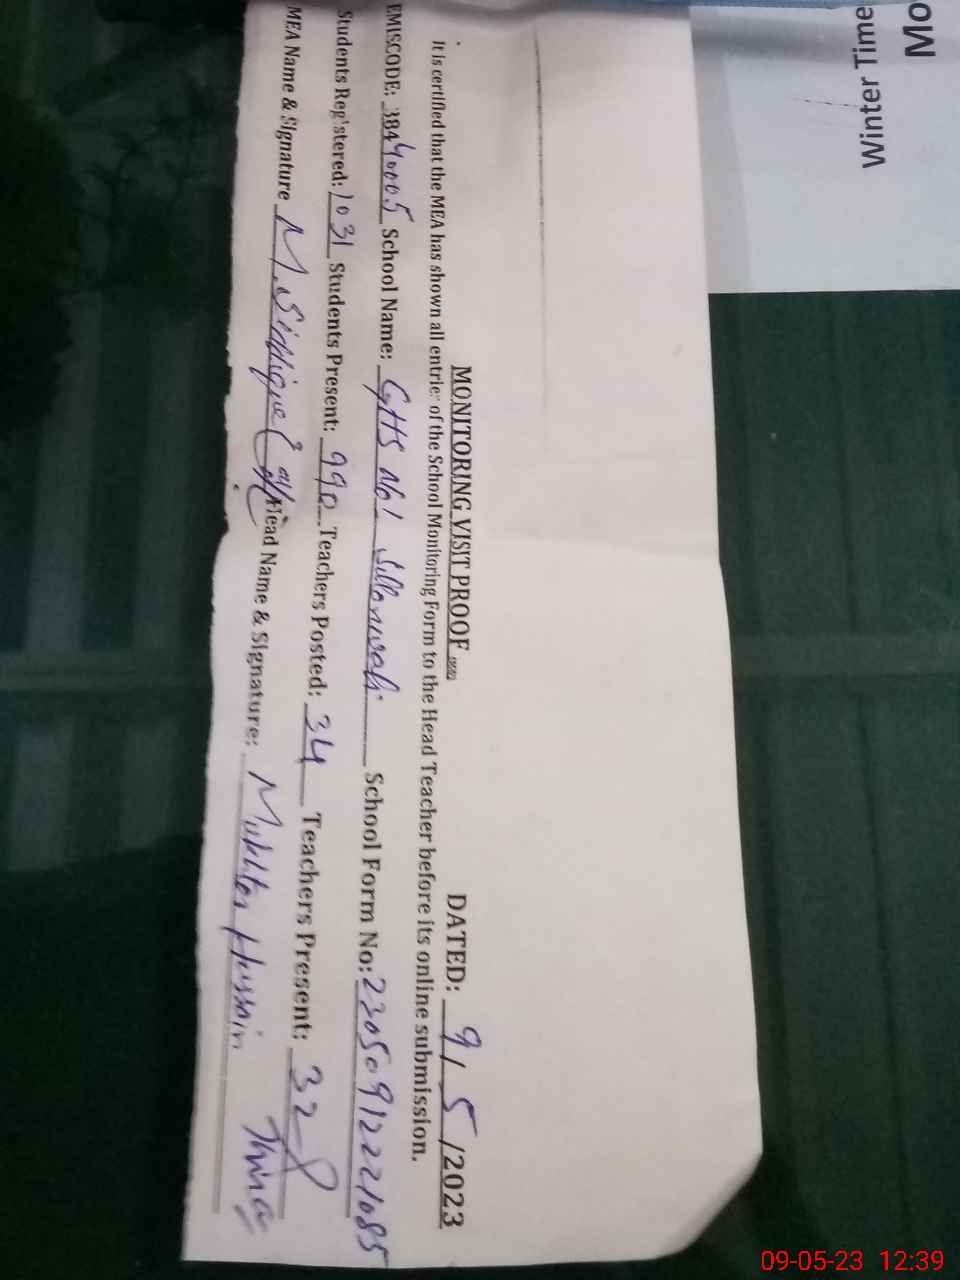 MONITORING VISIT PROOF DATED: 9/5/2023
It is certified that the MEA has shown all entries of the School Monitoring Form to the Head Teacher before its online submission.
EMISCODE: 38440005 School Name: GHS No1 Sillanwali School Form No: 230509122221085
Students Reg'stered: 1031 Students Present: 990 Teachers Posted: 34 Teachers Present: 32
MEA Name & Signature M. Siddique Head Name & Signature: Mukhtar Hussain
Winter Time
Mo
09-05-23 12:39